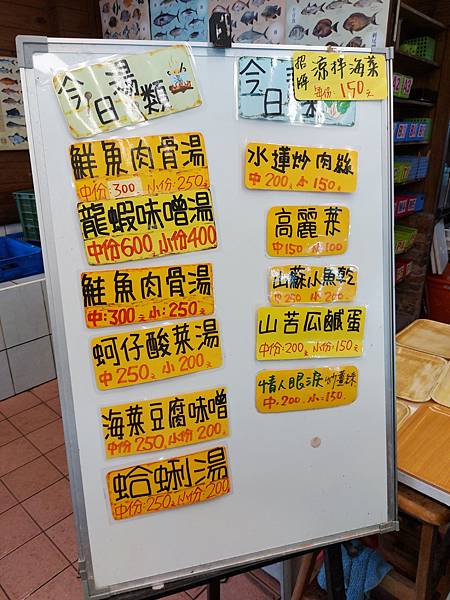 今日湯類
鮮魚肉骨湯
中份:300 小份:250元
龍蝦味噌湯
中份600 小份400
鮭魚肉骨湯
中:300元 小:250元
蚵仔酸菜湯
中250元 小200元
海菜豆腐味噌
中份250元 小份200元
蛤蜊湯
中份:250元 小份:200
今日 類
招牌 涼拌海菜
每份:150元
水蓮炒肉絲
中200元 小150元
高麗菜
中150 小100
山蘇小魚乾
中250元 小200元
山苦瓜鹹蛋
中份:200元 小份:150元
情人眼淚炒薑絲
中:200元 小:150元